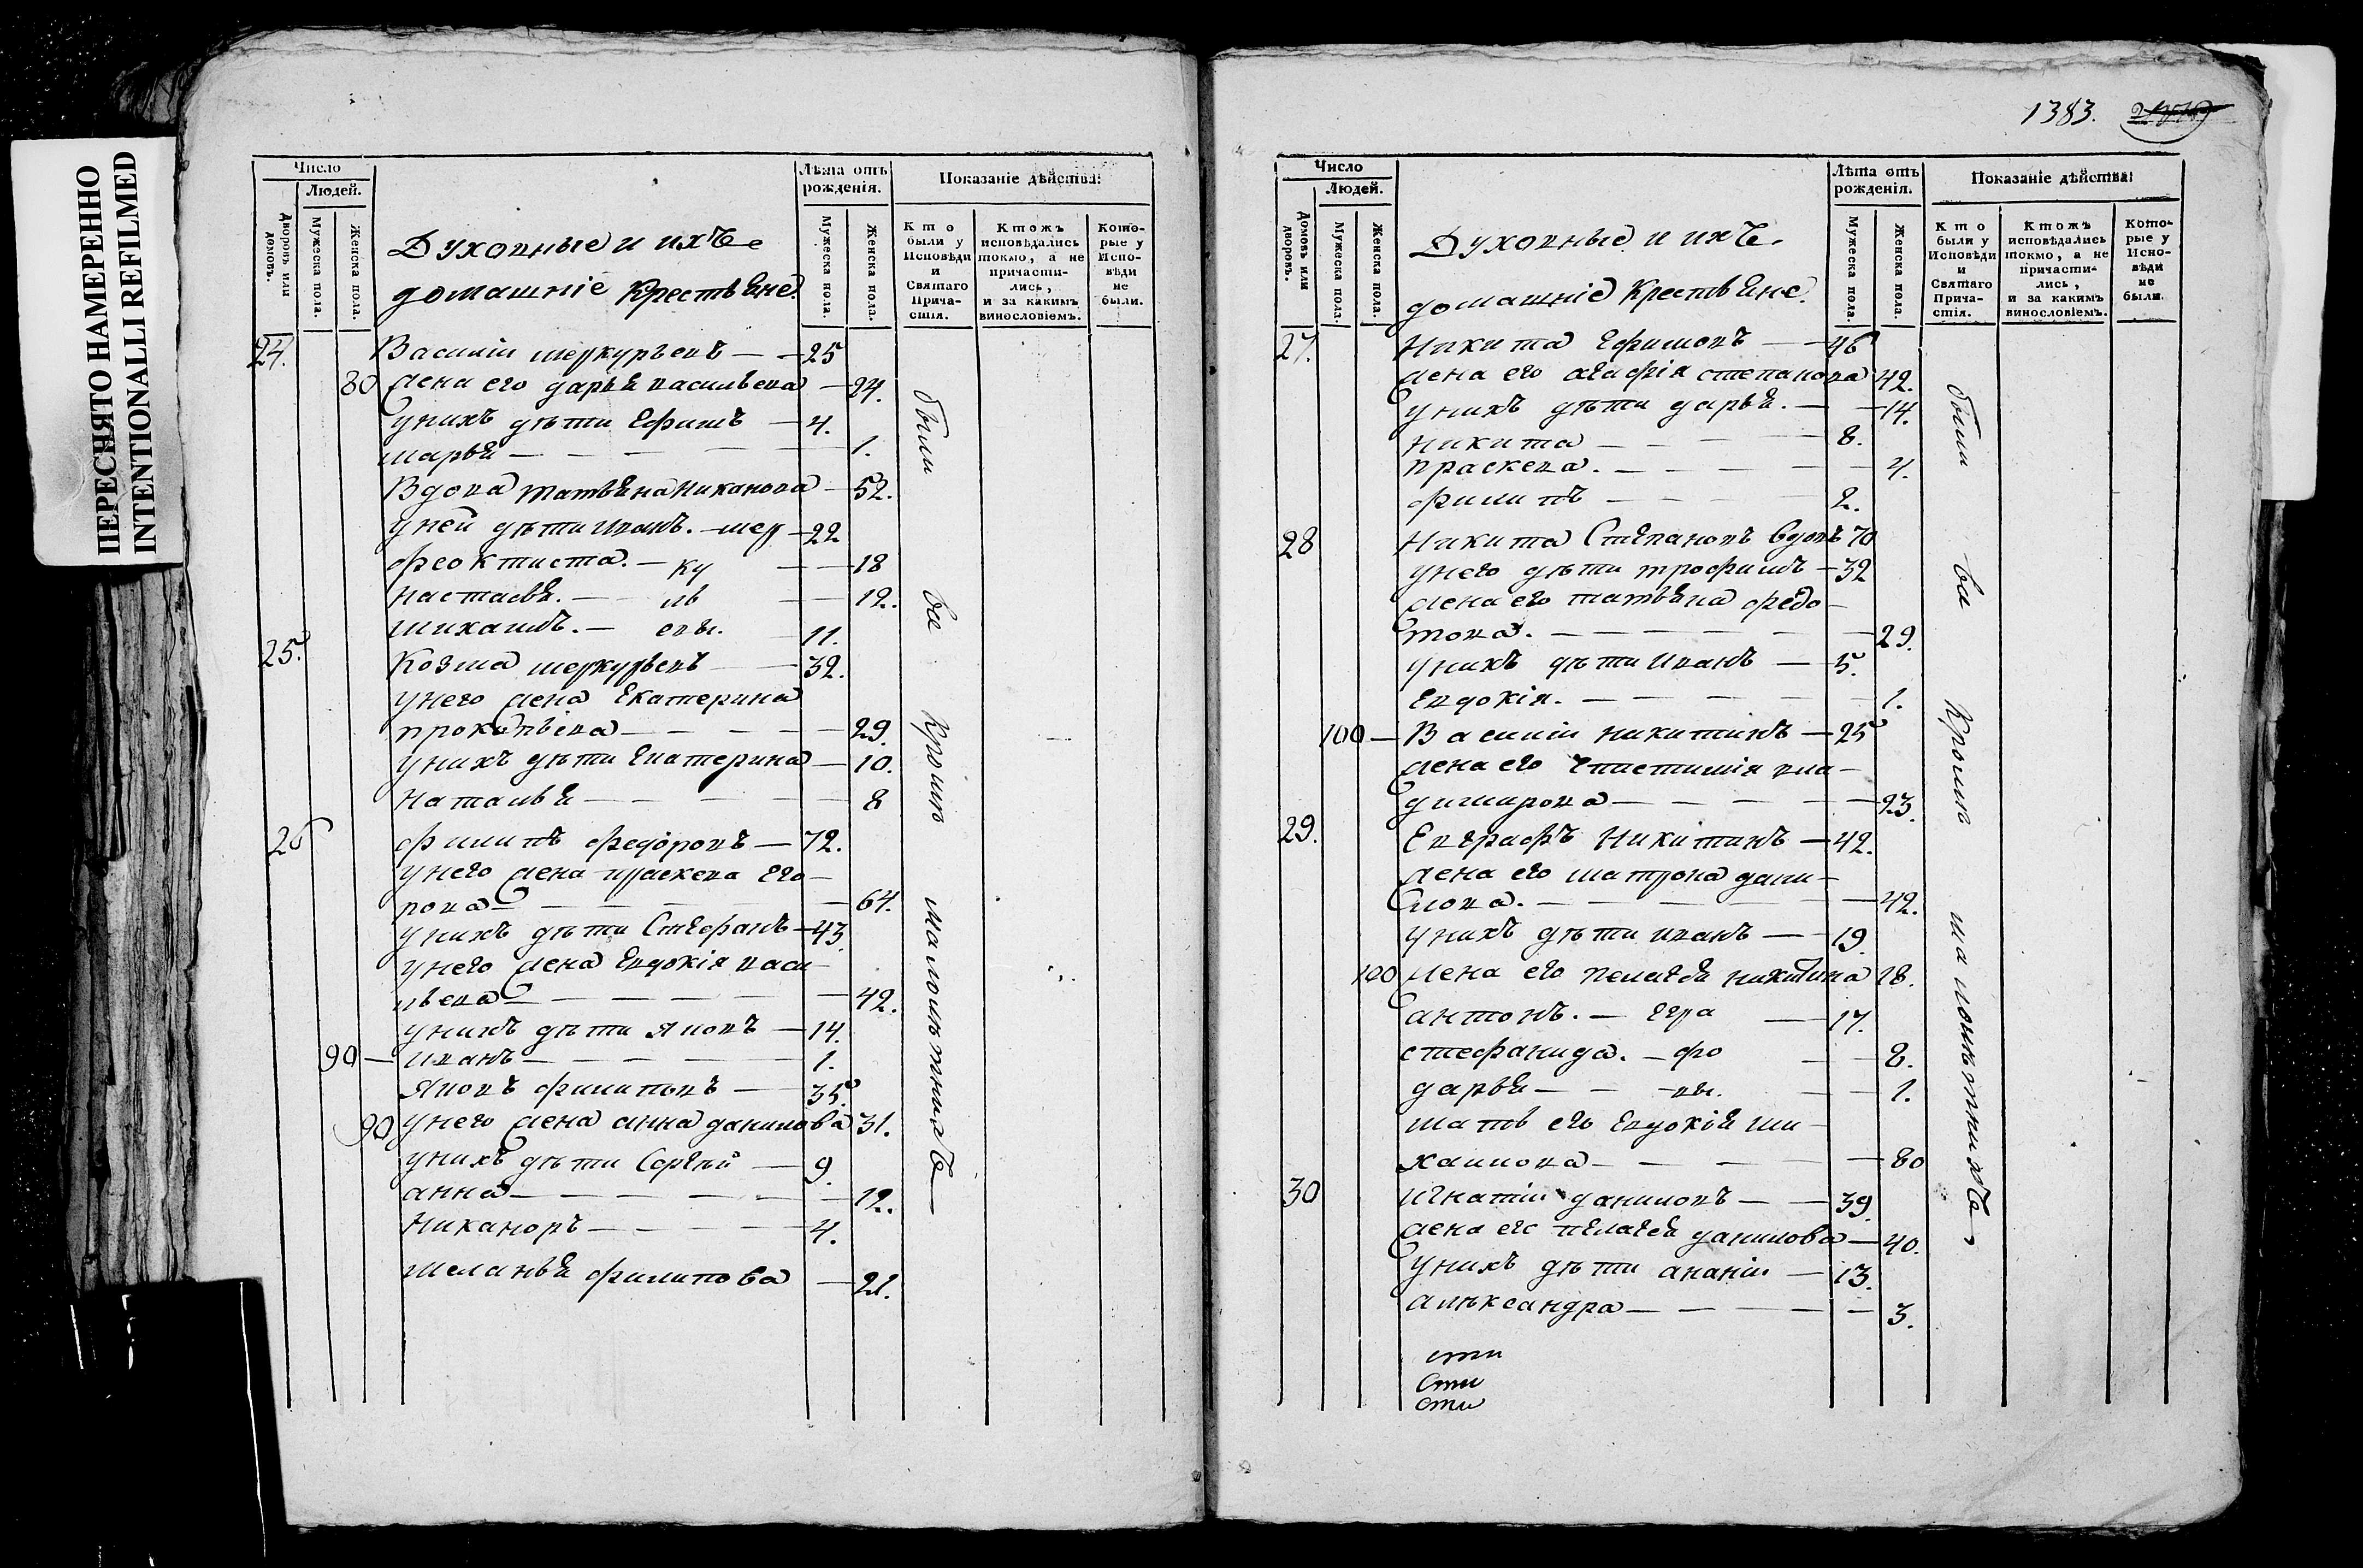 ПЕРЕСНЯТО НАМЕРЕННО
INTENTIONALLI REFILMED
Число
Людей.
Дворовъ или домовъ.
Мужеска пола.
Женска пола.
Лѣта отъ рожденія.
Мужеска пола.
Женска пола.
Показаніе дѣйства:
Кто были у Исповѣди и Святаго Причастія.
Ктожъ исповѣдались токмо, а не причастились, и за какимъ винословіемъ.
Которые у Исповѣди не были.
Духовные и ихъ
домашніе Крестьяне.
24. Василіи меркурьевъ — 25
80 жена его дарья васильева — 24.
у нихъ дѣти Ефимъ — 4.
марья — 1.
Вдова татьяна Никанова — 52.
у ней дѣти Иванъ. — мер — 22
феоктиста. — ку — 18
настасья. — ль — 12.
михаилъ. — евы. 11.
25. Козма меркурьевъ — 32.
у него жена Екатерина
прокопьева — 29.
у нихъ дѣти Екатерина — 10.
наталья — 8
26 филипъ федоровъ — 72.
у него жена праскева Его-
рова — 64.
у нихъ дѣти Стефанъ — 43.
у него жена Евдокія васи-
льева — 42.
у нихъ дѣти яковъ — 14.
90 — иванъ — 1.
яковъ филиповъ — 35.
90 у него жена анна данилова 31.
у нихъ дѣти Сергѣй — 9.
анна — 12.
Никаноръ — 4.
меланья филипова — 21.
были все кромѣ малолѣтныхъ
1383.
Число
Людей.
Домовъ или дворовъ.
Мужеска пола.
Женска пола.
Лѣта отъ рожденія.
Мужеска пола.
Женска пола.
Показаніе дѣйства:
Кто были у Исповѣди и Святаго Причастія.
Ктожъ исповѣдались токмо, а не причастились, и за какимъ винословіемъ.
Которые у Исповѣди не были.
Духовные и ихъ
домашніе Крестьяне.
27. Никита Ефимовъ — 46
жена его агафія степанова 42.
у нихъ дѣти дарья. — 14.
никита — 8.
праскева. — 4.
филипъ — 2.
28 Никита Степановъ вдовъ 70
у него дѣти трофимъ — 32
жена его татьяна федо-
това. — 29.
у нихъ дѣти иванъ — 5.
Евдокія. — 1.
100 — Василіи никитинъ — 25
жена его Епистимія вла-
димирова — 23.
29. Евграфъ Никитинъ — 42.
жена его матрона дани-
лова. — 42.
у нихъ дѣти иванъ — 19.
100 жена его пелагея никитина 18.
антонъ. — Евгра — 17.
стефанида. — фо — 8.
дарья — вы. — 1.
мать его Евдокія ми-
хаилова — 80
30 игнатіи даниловъ — 39.
жена его пелагея данилова — 40.
у нихъ дѣти ананіи — 13.
александра — 3.
сти
сти
сти
были все кромѣ малолѣтнихъ